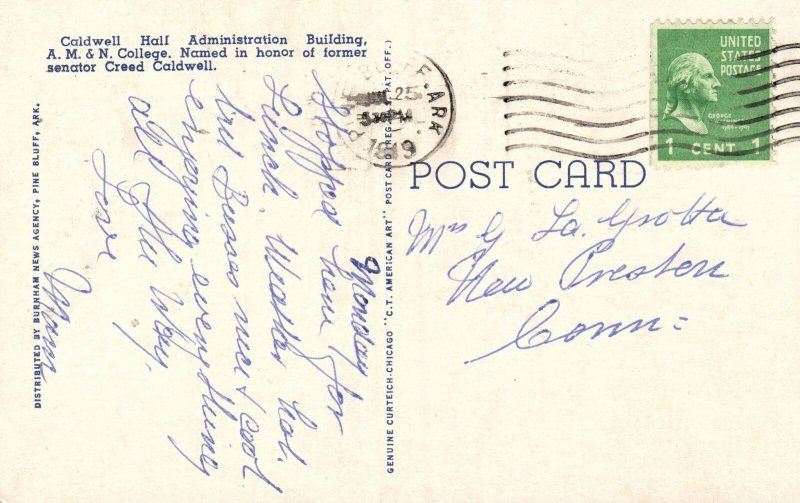 Caldwell Hall Administration Building,
A. M. & N. College. Named in honor of former
senator Creed Caldwell.
DISTRIBUTED BY BURNHAM NEWS AGENCY, PINE BLUFF, ARK.
Monday
Stopped here for
Lunch. Weather hot.
but Busses nice & cool
enjoying everything
all the way,
Love
Mom
GENUINE CURTEICH-CHICAGO "C.T. AMERICAN ART" POST CARD (REG. U.S. PAT. OFF.)
BLUFF. ARK.
25
UNITED
STATES
POSTAGE
GEORGE
WASHINGTON
1789-1797
1 CENT 1
POST CARD
Mrs G La Grotta
New Preston
Conn=